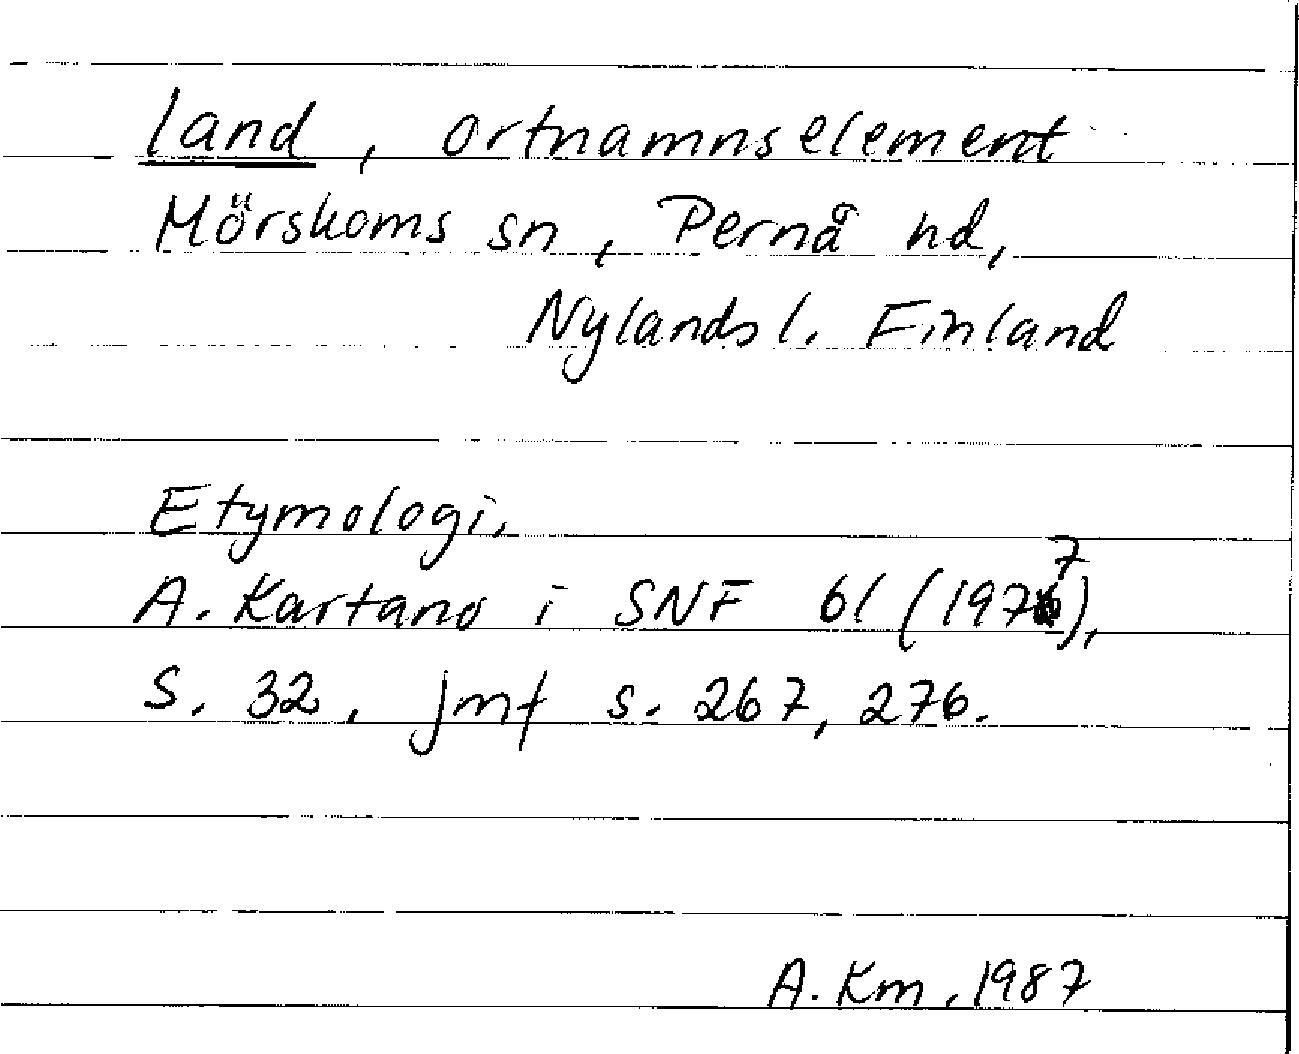 land, ortnamnselement
Mörskoms sn, Pernå hd,
Nylands l. Finland
Etymologi.
A. Kartano i SNF 61 (1977),
s. 32, jmf s. 267, 276.
A. Km. 1987